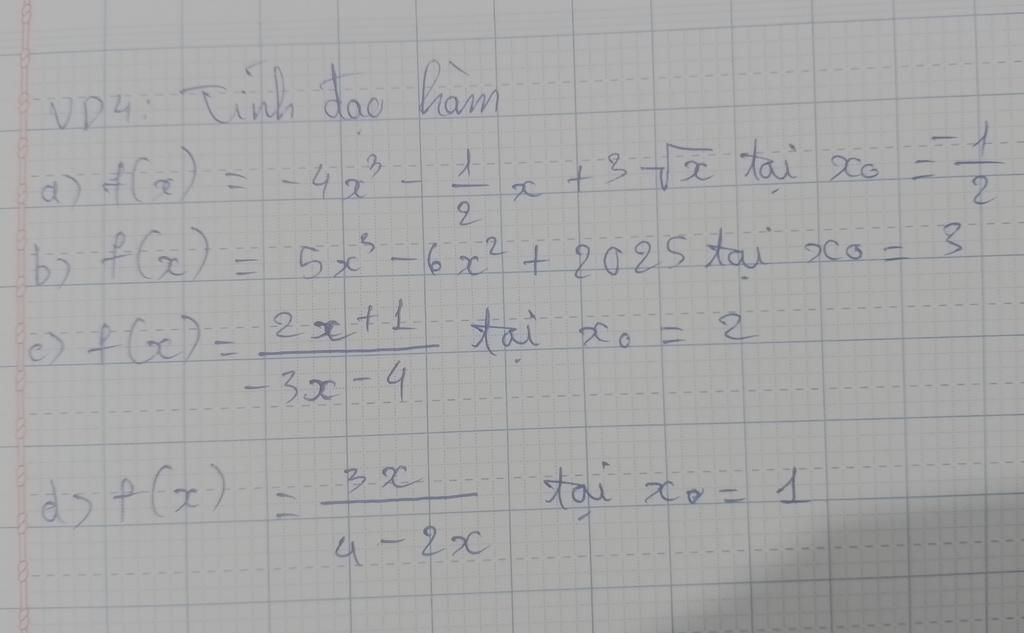 VD4: Tính đạo hàm
a) f(x) = -4x³ - 1/2 x + 3√x tại x₀ = -1/2
b) f(x) = 5x³ - 6x² + 2025 tại x₀ = 3
c) f(x) = (2x+1)/(-3x-4) tại x₀ = 2
d) f(x) = 3x/(4-2x) tại x₀ = 1